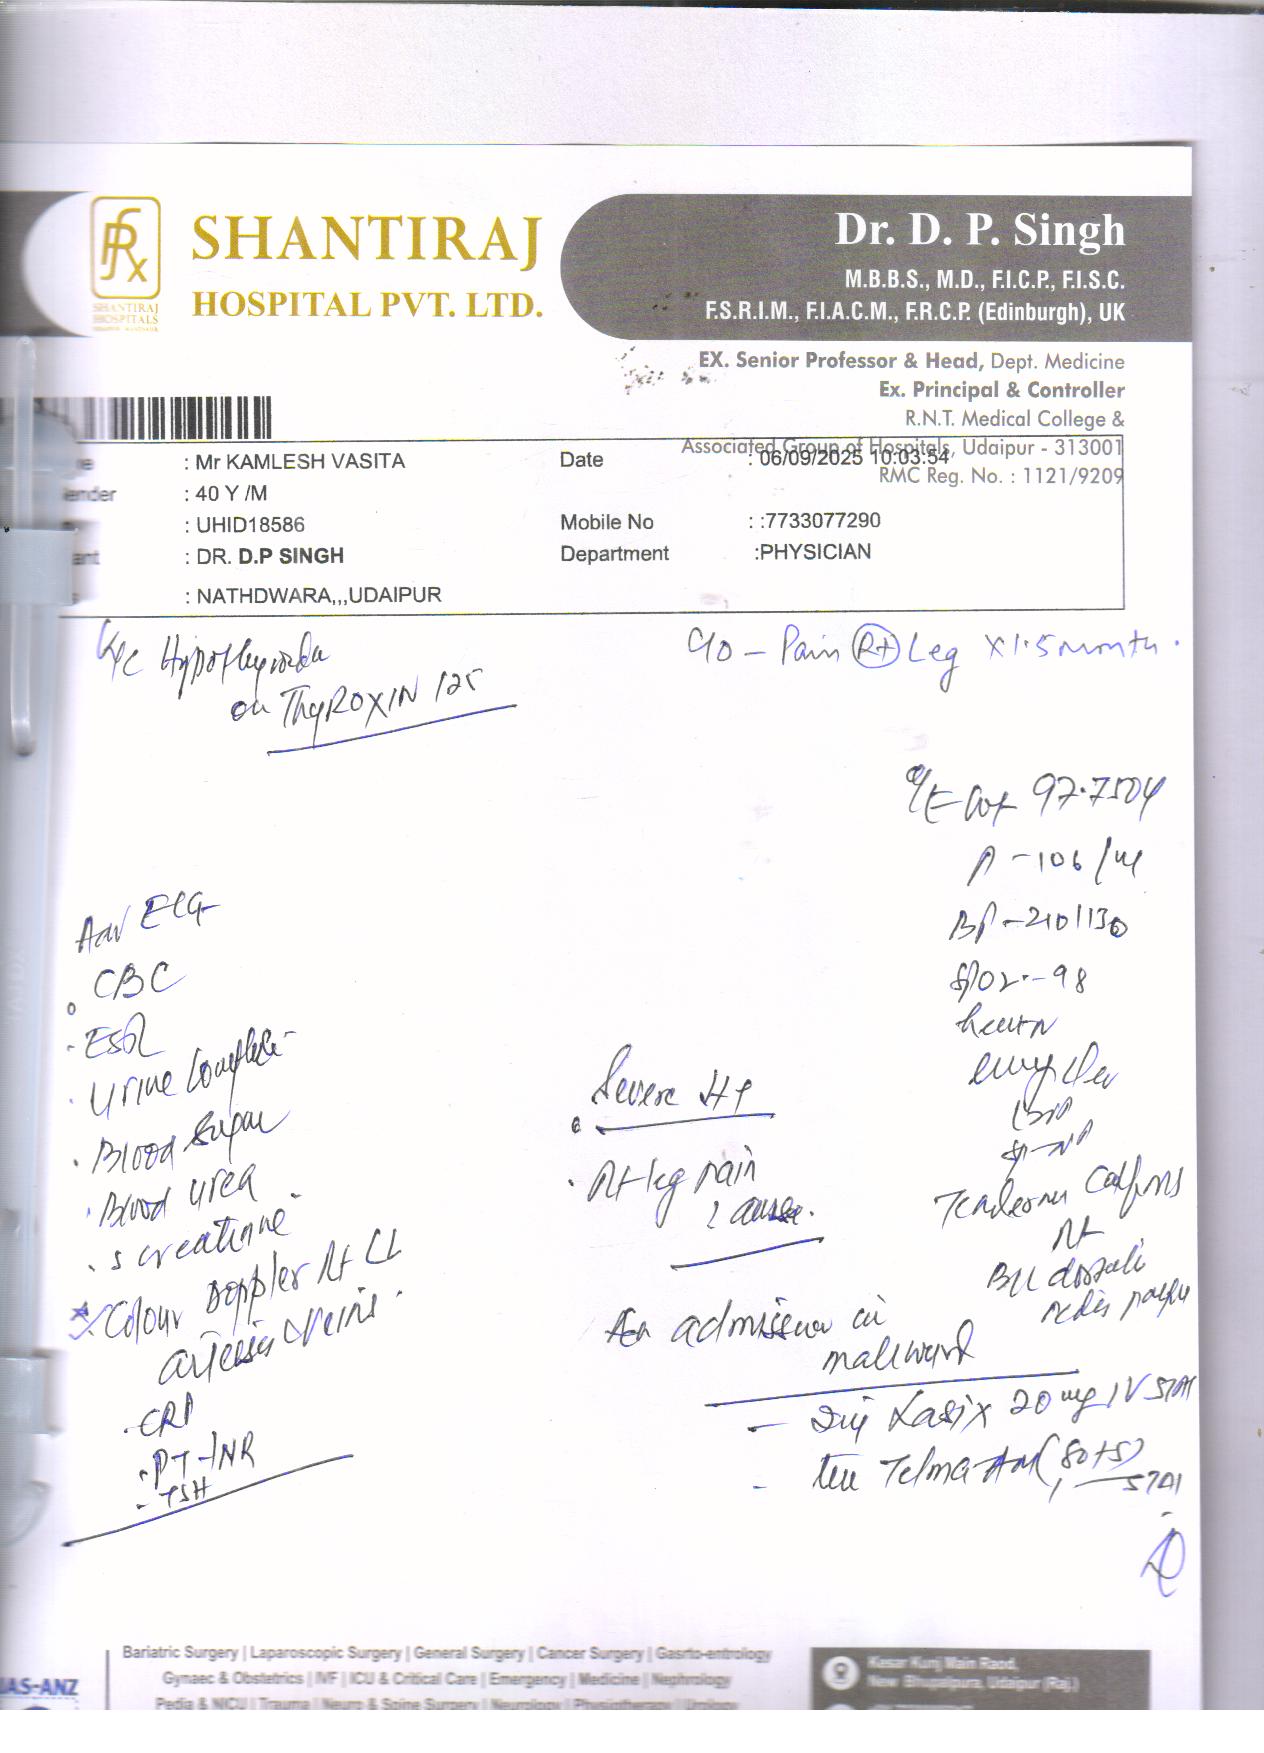 SHANTIRAJ
HOSPITAL PVT. LTD.
SHANTIRAJ
HOSPITALS
Dr. D. P. Singh
M.B.B.S., M.D., F.I.C.P., F.I.S.C.
F.S.R.I.M., F.I.A.C.M., F.R.C.P. (Edinburgh), UK
EX. Senior Professor & Head, Dept. Medicine
Ex. Principal & Controller
R.N.T. Medical College &
Associated Group of Hospitals, Udaipur - 313001
RMC Reg. No. : 1121/9209
: Mr KAMLESH VASITA Date : 06/09/2025 10:03:54
ender : 40 Y /M
: UHID18586 Mobile No : :7733077290
ant : DR. D.P SINGH Department :PHYSICIAN
: NATHDWARA,,,UDAIPUR
on THYROXIN 125
C/O - Pain Rt Leg X 1.5 month.
O/E
P - 106 /
BP - 210/130
SPO2 - - 98
Adv ECG
CBC
ESR
Urine Complete
Blood Sugar
Blood urea
S creatinine
Colour Doppler Rt LL
arteries & veins.
CRP
PT-INR
TSH
Severe
Rt leg pain
? cause.
Rt
admission in
male ward
- Inj Lasix 20 mg IV STAT
- Telma-AM (80+5)
STAT
Bariatric Surgery | Laparoscopic Surgery | General Surgery | Cancer Surgery | Gasrto-entrology
Gynaec & Obstetrics | IVF | ICU & Critical Care | Emergency | Medicine | Nephrology
Pedia & NICU | Trauma | Neuro & Spine Surgery | Neurology | Physiotherapy | Urology
Kesar Kunj Main Raod,
New Bhupalpura, Udaipur (Raj.)
JAS-ANZ